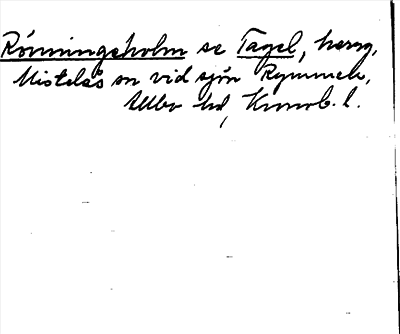 Rönningsholm se Tagel, herrg,
Mistelås sn vid sjön Rymmen,
Allbo hd, Kronob. l.